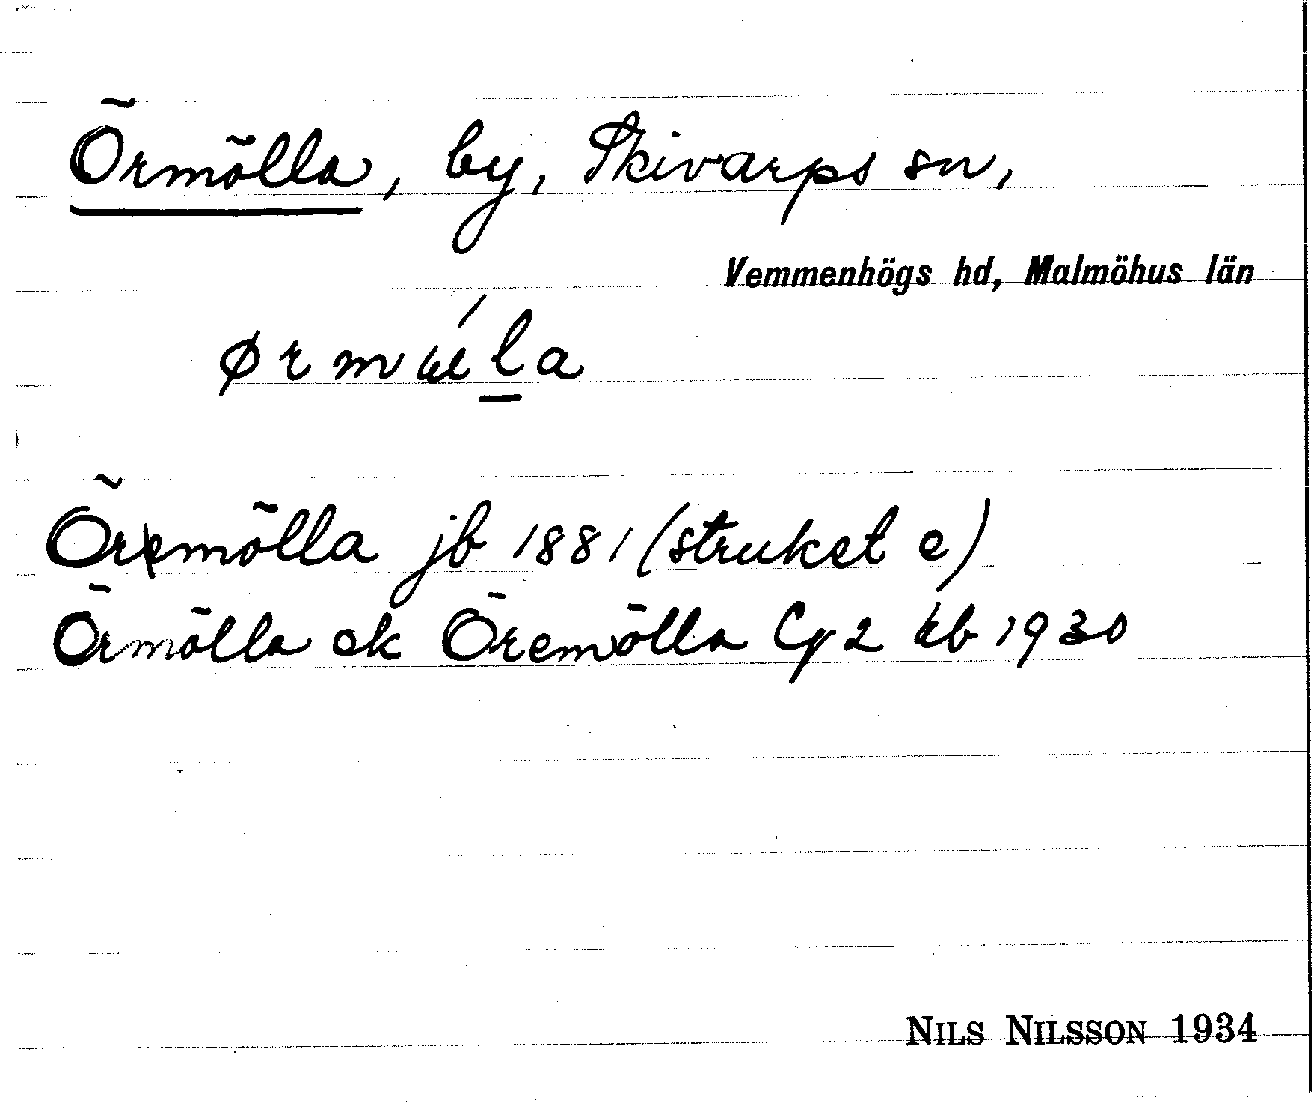 Örmölla, by, Skivarps sn,
Vemmenhögs hd, Malmöhus län
Öremölla jb 1881 (struket e)
Örmölla ok Öremölla Gg 2 kb 1930
NILS NILSSON 1934